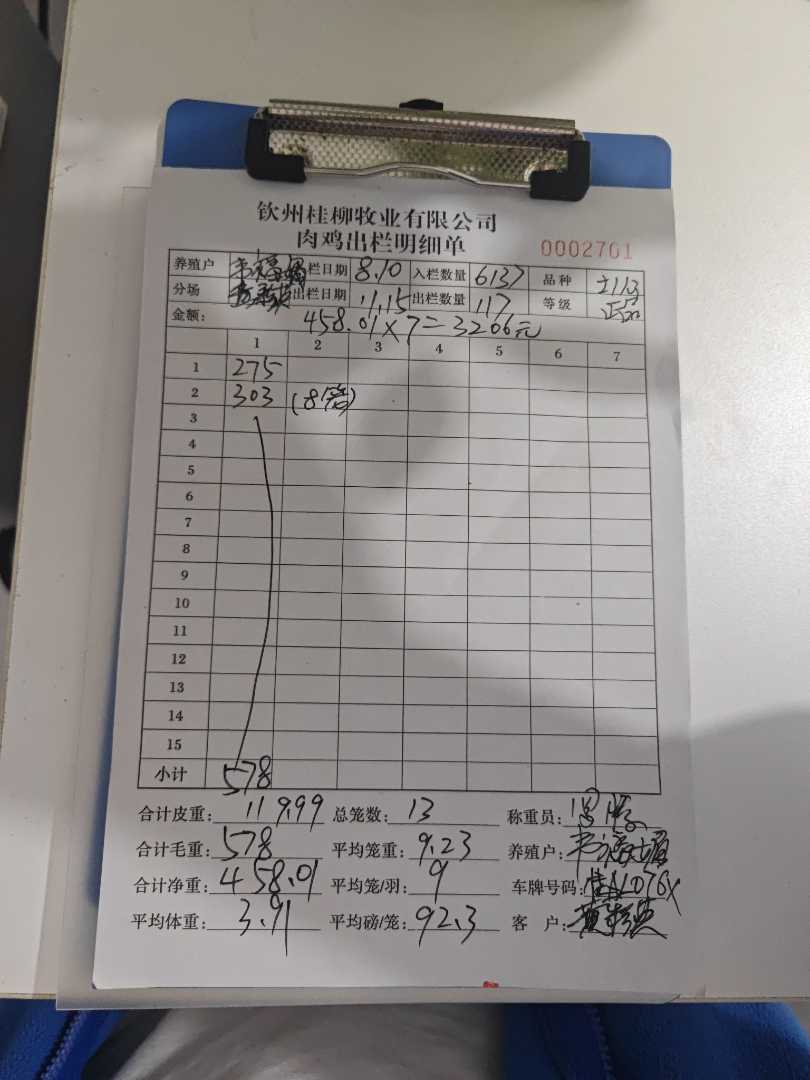 钦州桂柳牧业有限公司
肉鸡出栏明细单 0002701
养殖户 栏日期 8.10 入栏数量 6137 品种
分场 出栏日期 11.15 出栏数量 117 等级 正品
金额: 458.01×7=3206元
1 2 3 4 5 6 7
1 275
2 303 (8笼)
3
4
5
6
7
8
9
10
11
12
13
14
15
小计 578
合计皮重: 119.99 总笼数: 13 称重员:
合计毛重: 578 平均笼重: 9.23 养殖户:
合计净重: 458.01 平均笼/羽: 9 车牌号码:
平均体重: 3.91 平均磅/笼: 92.3 客 户: